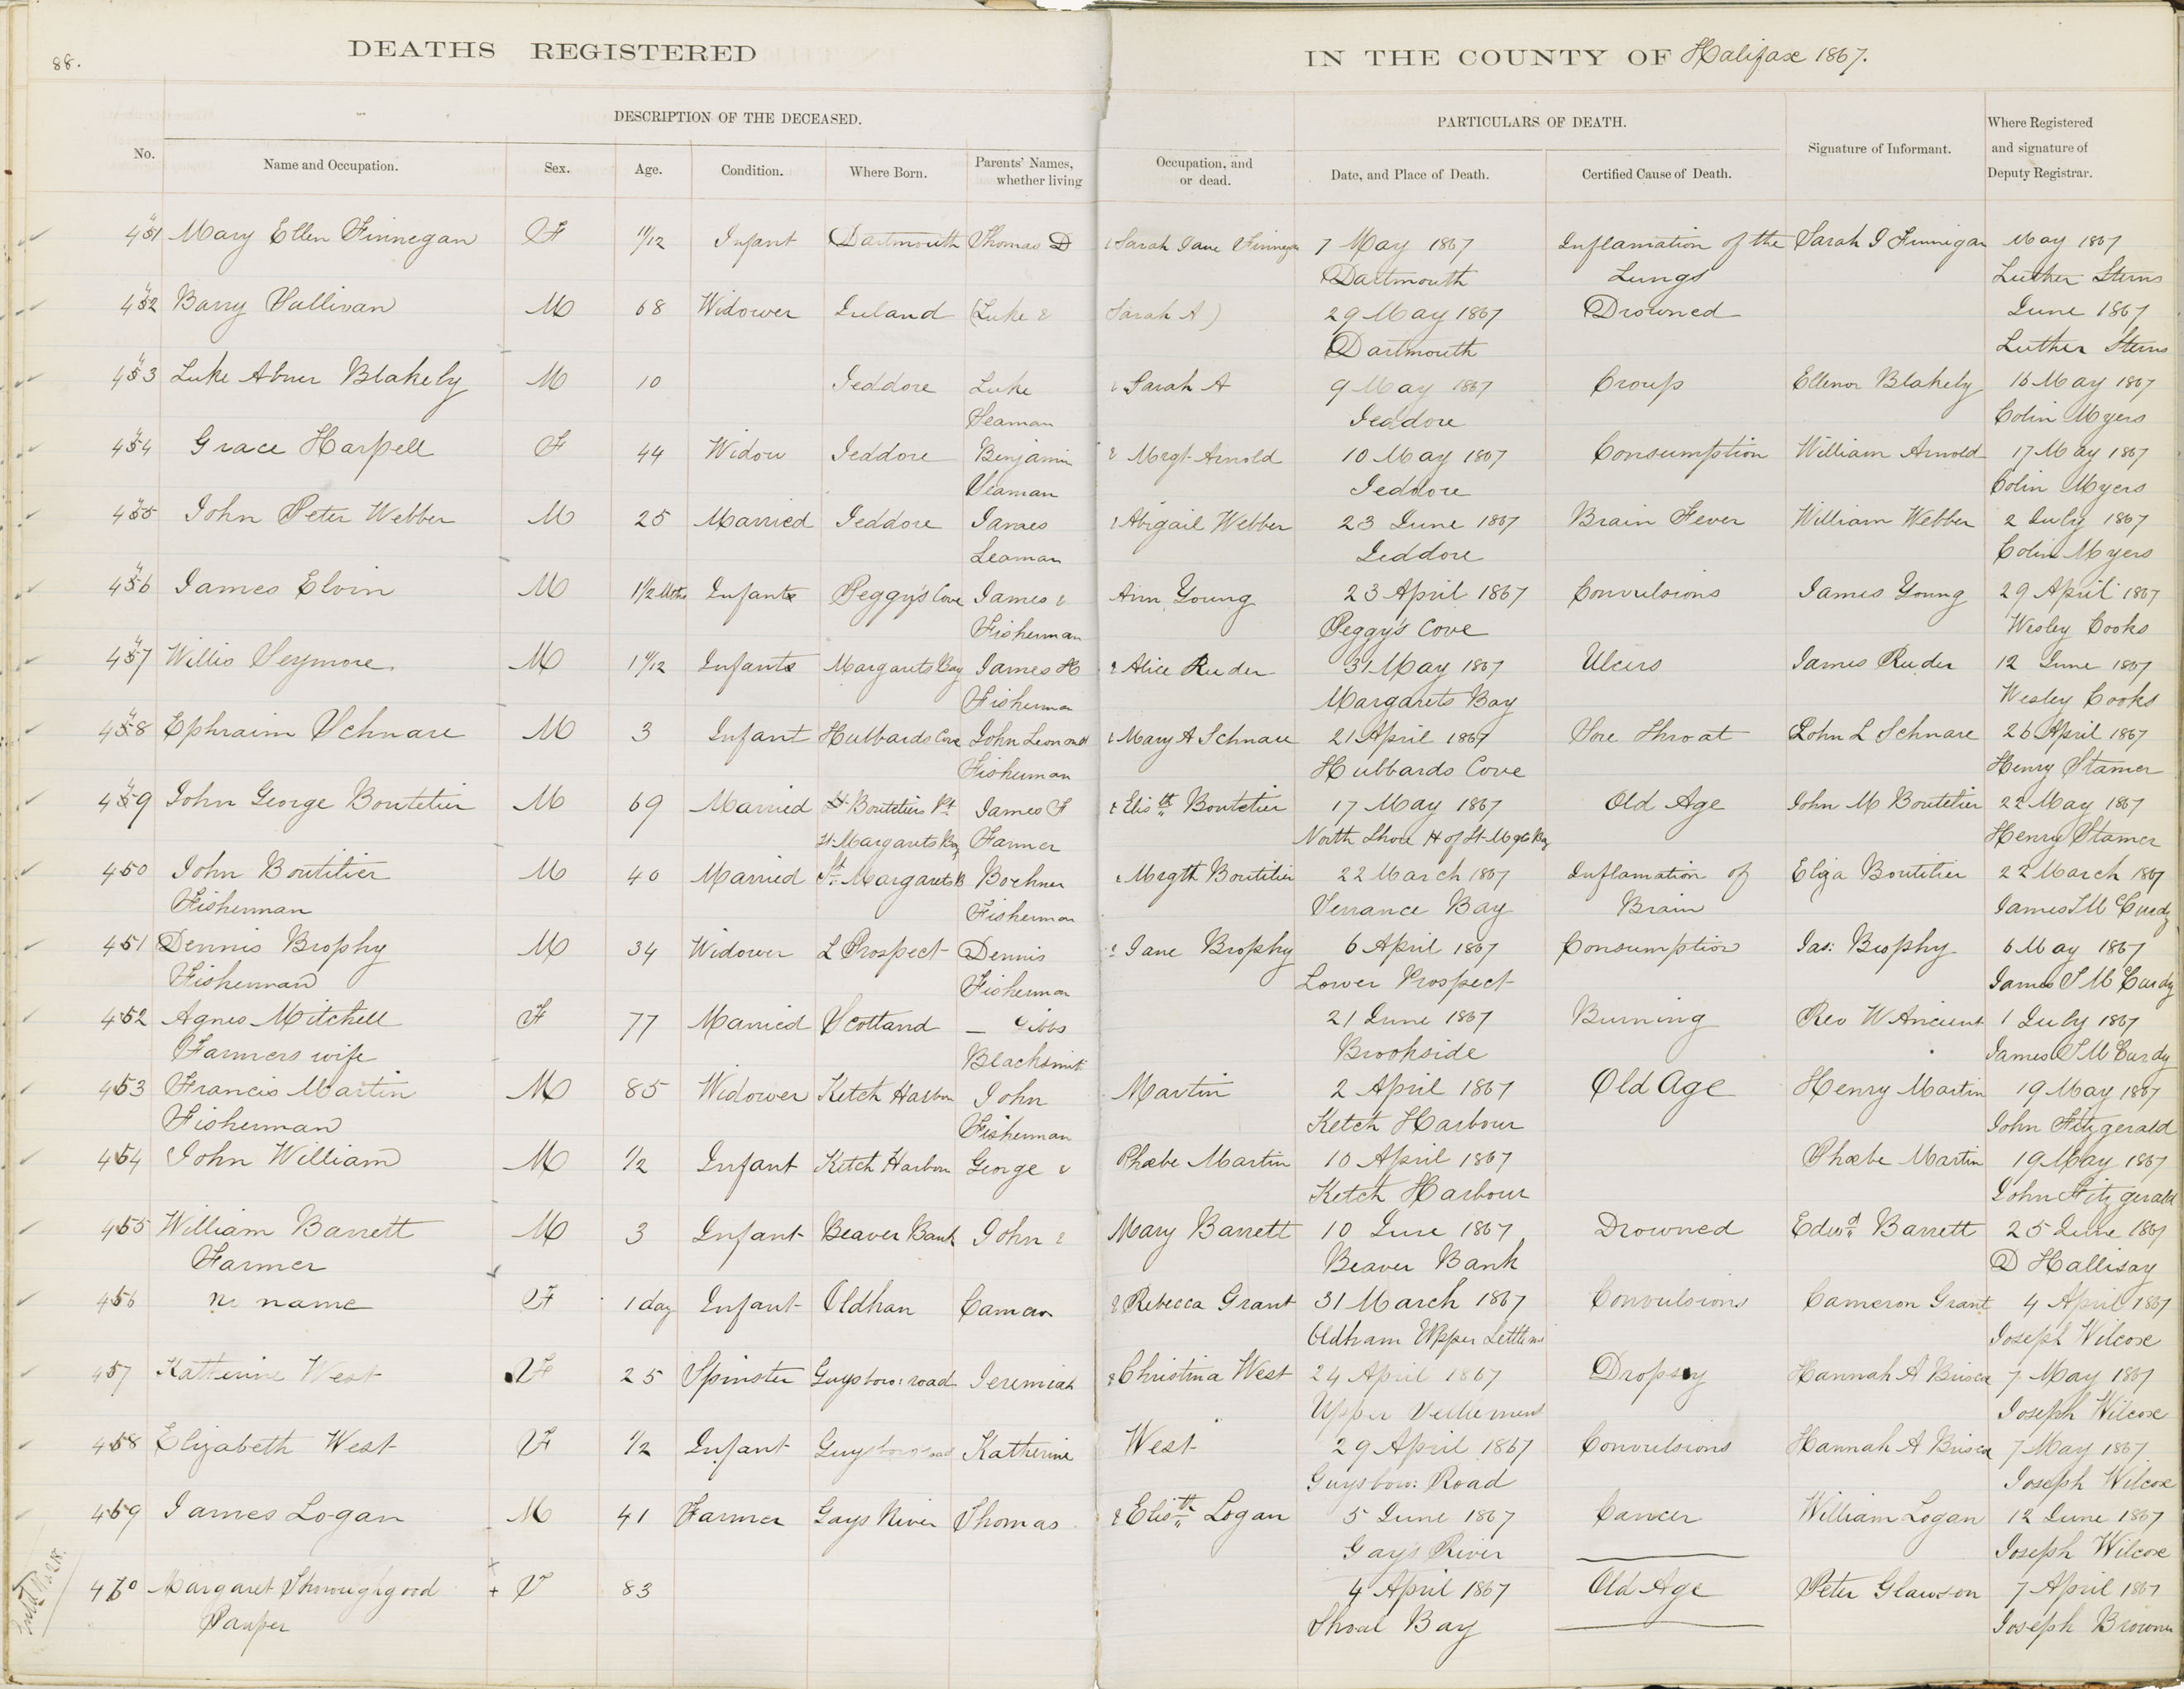 88.
DEATHS REGISTERED IN THE COUNTY OF Halifax 1867.
DESCRIPTION OF THE DECEASED. PARTICULARS OF DEATH.
No. Name and Occupation. Sex. Age. Condition. Where Born. Parents' Names, whether living Occupation, and or dead. Date, and Place of Death. Certified Cause of Death. Signature of Informant. Where Registered and signature of Deputy Registrar.
441 Mary Ellen Finnegan F 11/12 Infant Dartmouth Thomas D & Sarah Jane Finnegan 7 May 1867 Inflamation of the Sarah J Finnigan May 1867
Dartmouth Lungs Luther Sterns
442 Barry Sullivan M 68 Widower Ireland (Luke & Sarah A) 29 May 1867 Drowned June 1867
Dartmouth Luther Sterns
443 Luke Abner Blakely M 10 Jeddore Luke & Sarah A 9 May 1867 Croup Ellenor Blakely 16 May 1867
Seaman Jeddore Colin Myers
444 Grace Harpell F 44 Widow Jeddore Benjamin & Margt Arnold 10 May 1867 Consumption William Arnold 17 May 1867
Seaman Jeddore Colin Myers
445 John Peter Webber M 25 Married Jeddore James & Abigail Webber 23 June 1867 Brain Fever William Webber 2 July 1867
Seaman Jeddore Colin Myers
446 James Elvin M 1 1/2 Mths Infant Peggy's Cove James & Ann Young 23 April 1867 Convulsions James Young 29 April 1867
Fisherman Peggy's Cove Wesley Cooks
447 Willis Seymore M 1 11/12 Infant Margarets Bay James H & Alice Ruder 31 May 1867 Ulcers James Ruder 12 June 1867
Fisherman Margarets Bay Wesley Cooks
448 Ephraim Schnare M 3 Infant Hubbards Cove John Leonard & Mary A Schnare 21 April 1867 Sore Throat John L Schnare 26 April 1867
Fisherman Hubbards Cove Henry Stamer
449 John George Boutelier M 69 Married Bouteliers Pt James F & Elisth Boutelier 17 May 1867 Old Age John M Boutelier 22 May 1867
St Margarets Bay Farmer North Shore H of St Mgts Bay Henry Stamer
450 John Boutilier M 40 Married St. Margarets B Bochner & Margth Boutilier 22 March 1867 Inflamation of Eliza Boutilier 22 March 1867
Fisherman Fisherman Terrance Bay Brain James S McCurdy
451 Dennis Brophy M 34 Widower L Prospect Dennis & Jane Brophy 6 April 1867 Consumption Jas: Brophy 6 May 1867
Fisherman Fisherman Lower Prospect James S McCurdy
452 Agnes Mitchell F 77 Married Scotland — Gibbs 21 June 1867 Burning Rev W Ancient 1 July 1867
Farmers wife Blacksmit Brookside James S McCurdy
453 Francis Martin M 85 Widower Ketch Harbou John Martin 2 April 1867 Old Age Henry Martin 19 May 1867
Fisherman Fisherman Ketch Harbour John Fitzgerald
454 John William M 1/2 Infant Ketch Harbou George & Phœbe Martin 10 April 1867 Phœbe Martin 19 May 1867
Ketch Harbour John Fitzgerald
455 William Barrett M 3 Infant Beaver Bank John & Mary Barrett 10 June 1867 Drowned Edwd Barrett 25 June 1867
Farmer Beaver Bank D Hallisay
456 no name F 1 day Infant Oldhan Camron & Rebecca Grant 31 March 1867 Convulsions Cameron Grant 4 April 1867
Oldham Upper Settlm Joseph Wilcox
457 Katherine West F 25 Spinster Guysboro: road Jeremiah & Christina West 24 April 1867 Dropsy Hannah A Brisco 7 May 1867
Upper Settlement Joseph Wilcox
458 Elizabeth West F 1/2 Infant Guysboro road Katherine West 29 April 1867 Convulsions Hannah A Brisco 7 May 1867
Guysboro: Road Joseph Wilcox
459 James Logan M 41 Farmer Gays River Thomas & Elisth Logan 5 June 1867 Cancer William Logan 12 June 1867
Gay's River Joseph Wilcox
460 Margaret Throughgood + F 83 4 April 1867 Old Age Peter Glawson 7 April 1867
Pauper Shoal Bay Joseph Browne